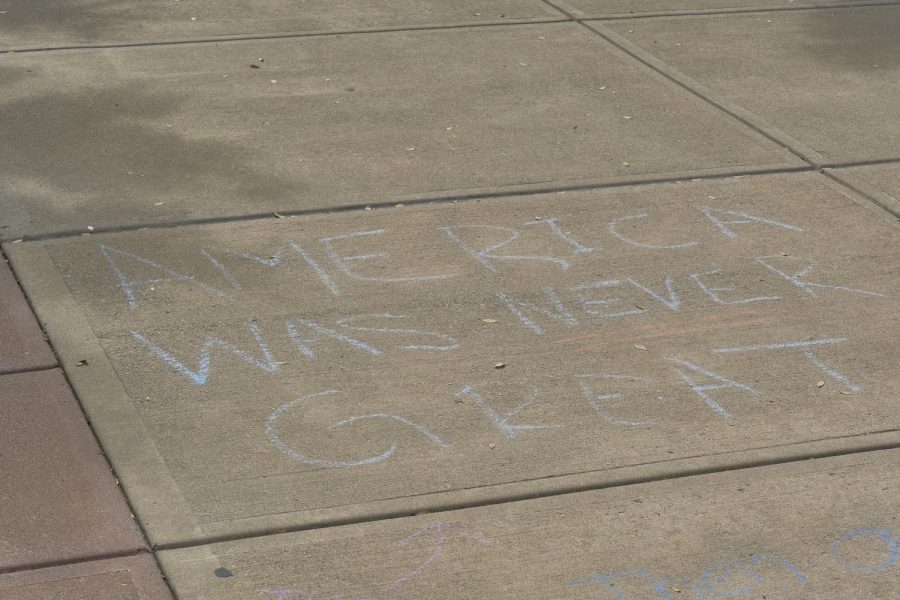 AMERICA
WAS NEVER
GREAT